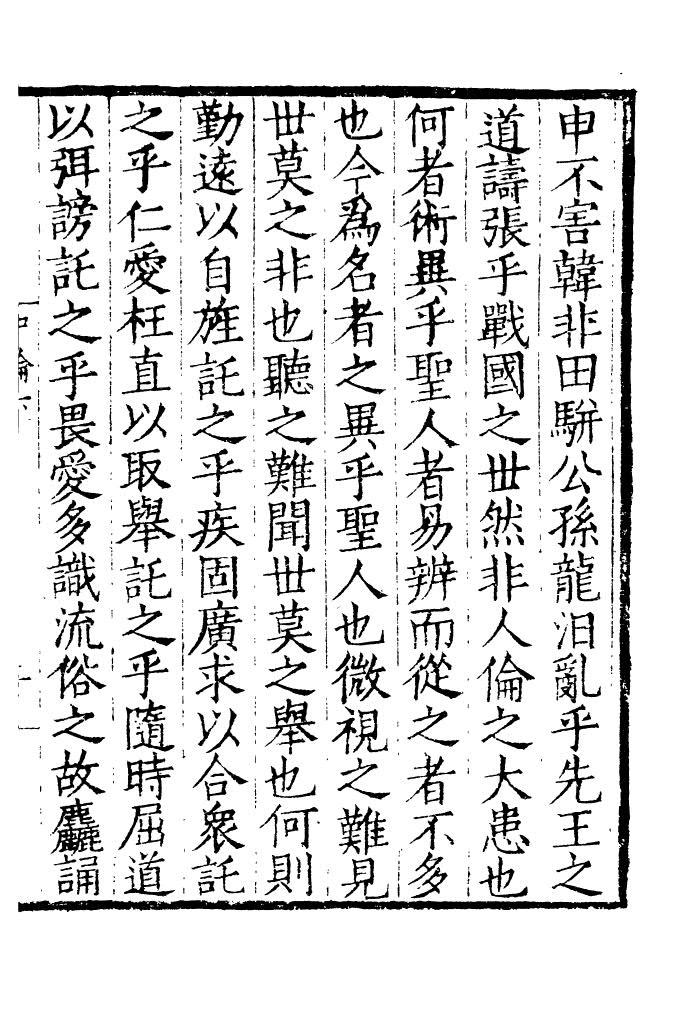 申不害韓非田駢公孫龍汨亂乎先王之
道譸張乎戰國之世然非人倫之大患也
何者術異乎聖人者易辨而從之者不多
也今爲名者之異乎聖人也微視之難見
世莫之非也聽之難聞世莫之舉也何則
勤遠以自旌託之乎疾固廣求以合衆託
之乎仁愛枉直以取舉託之乎隨時屈道
以弭謗託之乎畏愛多識流俗之故麤誦